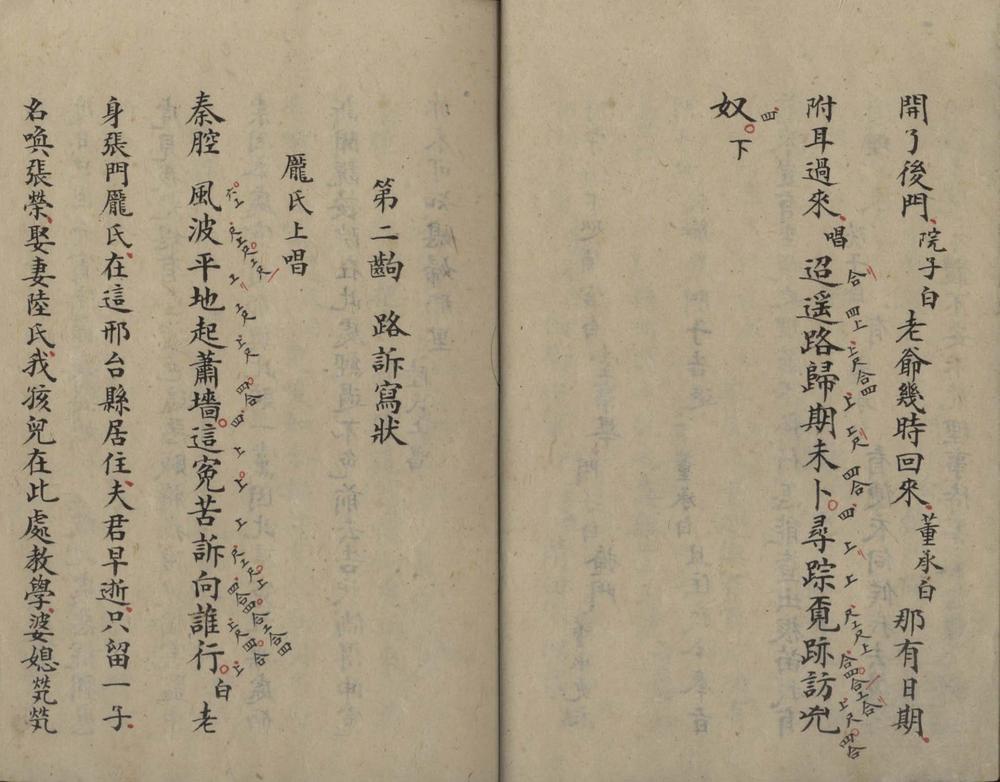 開了後門院子白老爺幾時回來董承白那有日期
附耳過來唱迢遥路歸期未卜尋踪覓跡訪兇
奴下
第二齣 路訴寫狀
龎氏上唱
秦腔 風波平地起蕭墻這寃苦訴向誰行白老
身張門龎氏在這邢台縣居住夫君早逝只留一子
名喚張榮娶妻陸氏我孩兒在此處教學婆媳煢煢